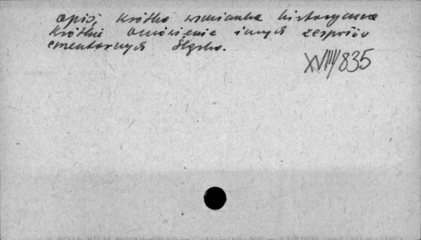 opis, krótka wzmianka historyczna
krótkie omówienie innych zespołów
cmentarnych Śląska.
XVIII/835